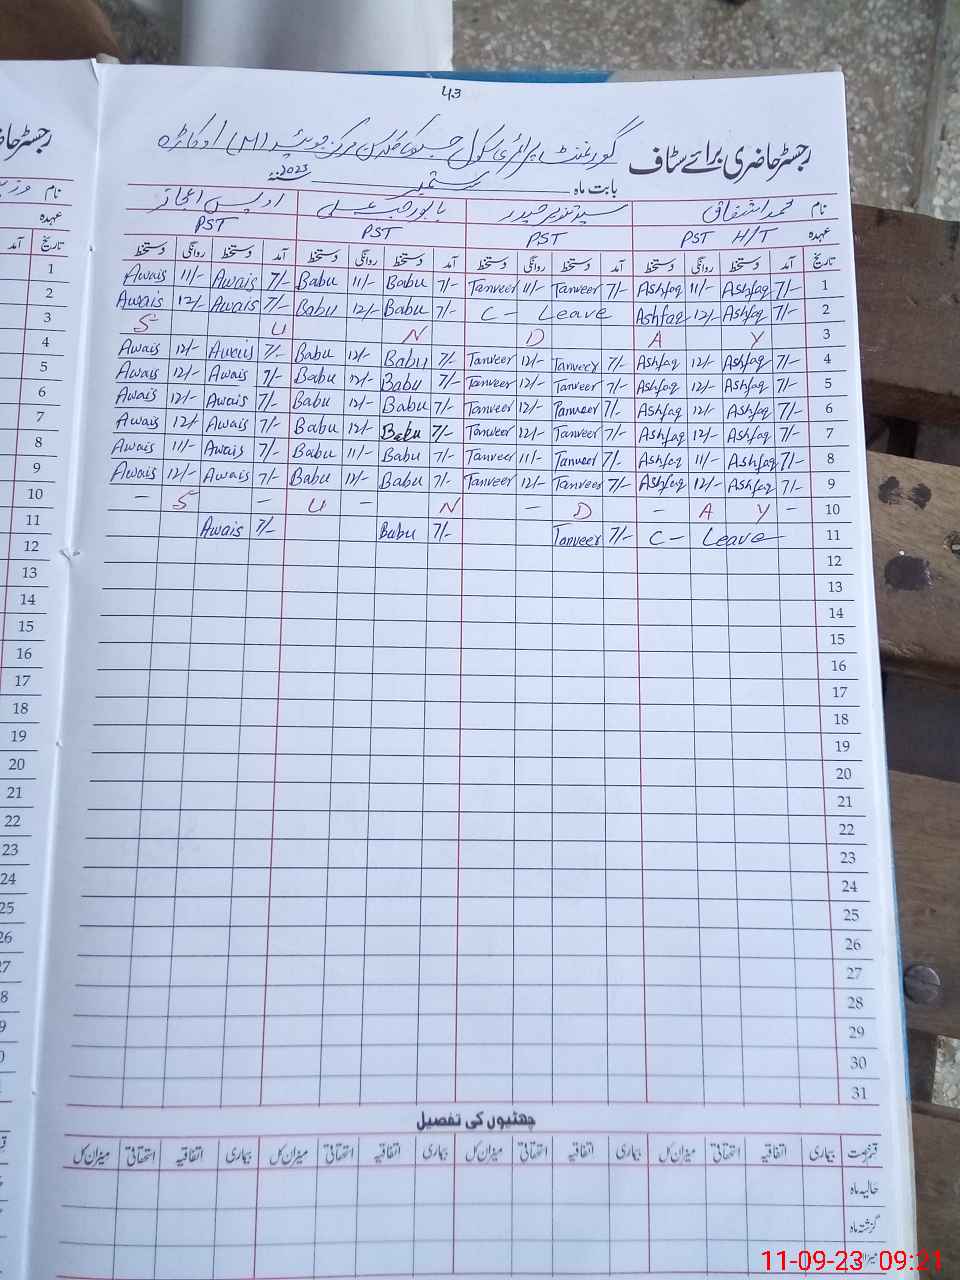 43
رجسٹر حاضری برائے سٹاف گورنمنٹ پرائمری سکول
بابت ماہ ستمبر 2023ء
نام محمد اشفاق سید تنویر حیدر بابر رجب علی اویس اعجاز
عہدہ PST H/T PST PST PST
تاریخ آمد دستخط روانگی دستخط آمد دستخط روانگی دستخط آمد دستخط روانگی دستخط آمد دستخط روانگی دستخط
Awais 11/- Awais 7/- Babu 11/- Babu 7/- Tanveer 11/- Tanveer 7/- Ashfaq 11/- Ashfaq 7/- 1
Awais 12/- Awais 7/- Babu 12/- Babu 7/- C- Leave Ashfaq 12/- Ashfaq 7/- 2
S U N D A Y 3
Awais 12/- Awais 7/- Babu 12/- Babu 7/- Tanveer 12/- Tanveer 7/- Ashfaq 12/- Ashfaq 7/- 4
Awais 12/- Awais 7/- Babu 12/- Babu 7/- Tanveer 12/- Tanveer 7/- Ashfaq 12/- Ashfaq 7/- 5
Awais 12/- Awais 7/- Babu 12/- Babu 7/- Tanveer 12/- Tanveer 7/- Ashfaq 12/- Ashfaq 7/- 6
Awais 12/- Awais 7/- Babu 12/- Babu 7/- Tanveer 12/- Tanveer 7/- Ashfaq 12/- Ashfaq 7/- 7
Awais 11/- Awais 7/- Babu 11/- Babu 7/- Tanveer 11/- Tanveer 7/- Ashfaq 11/- Ashfaq 7/- 8
Awais 12/- Awais 7/- Babu 12/- Babu 7/- Tanveer 12/- Tanveer 7/- Ashfaq 12/- Ashfaq 7/- 9
- S - U - N - D - A Y - 10
Awais 7/- Babu 7/- Tanveer 7/- C- Leave 11
12
13
14
15
16
17
18
19
20
21
22
23
24
25
26
27
28
29
30
31
چھٹیوں کی تفصیل
قسم رخصت بیماری اتفاقیہ استحقاقی میزان کل بیماری اتفاقیہ استحقاقی میزان کل بیماری اتفاقیہ استحقاقی میزان کل بیماری اتفاقیہ استحقاقی میزان کل
حالیہ ماہ
گزشتہ ماہ
11-09-23 09:21